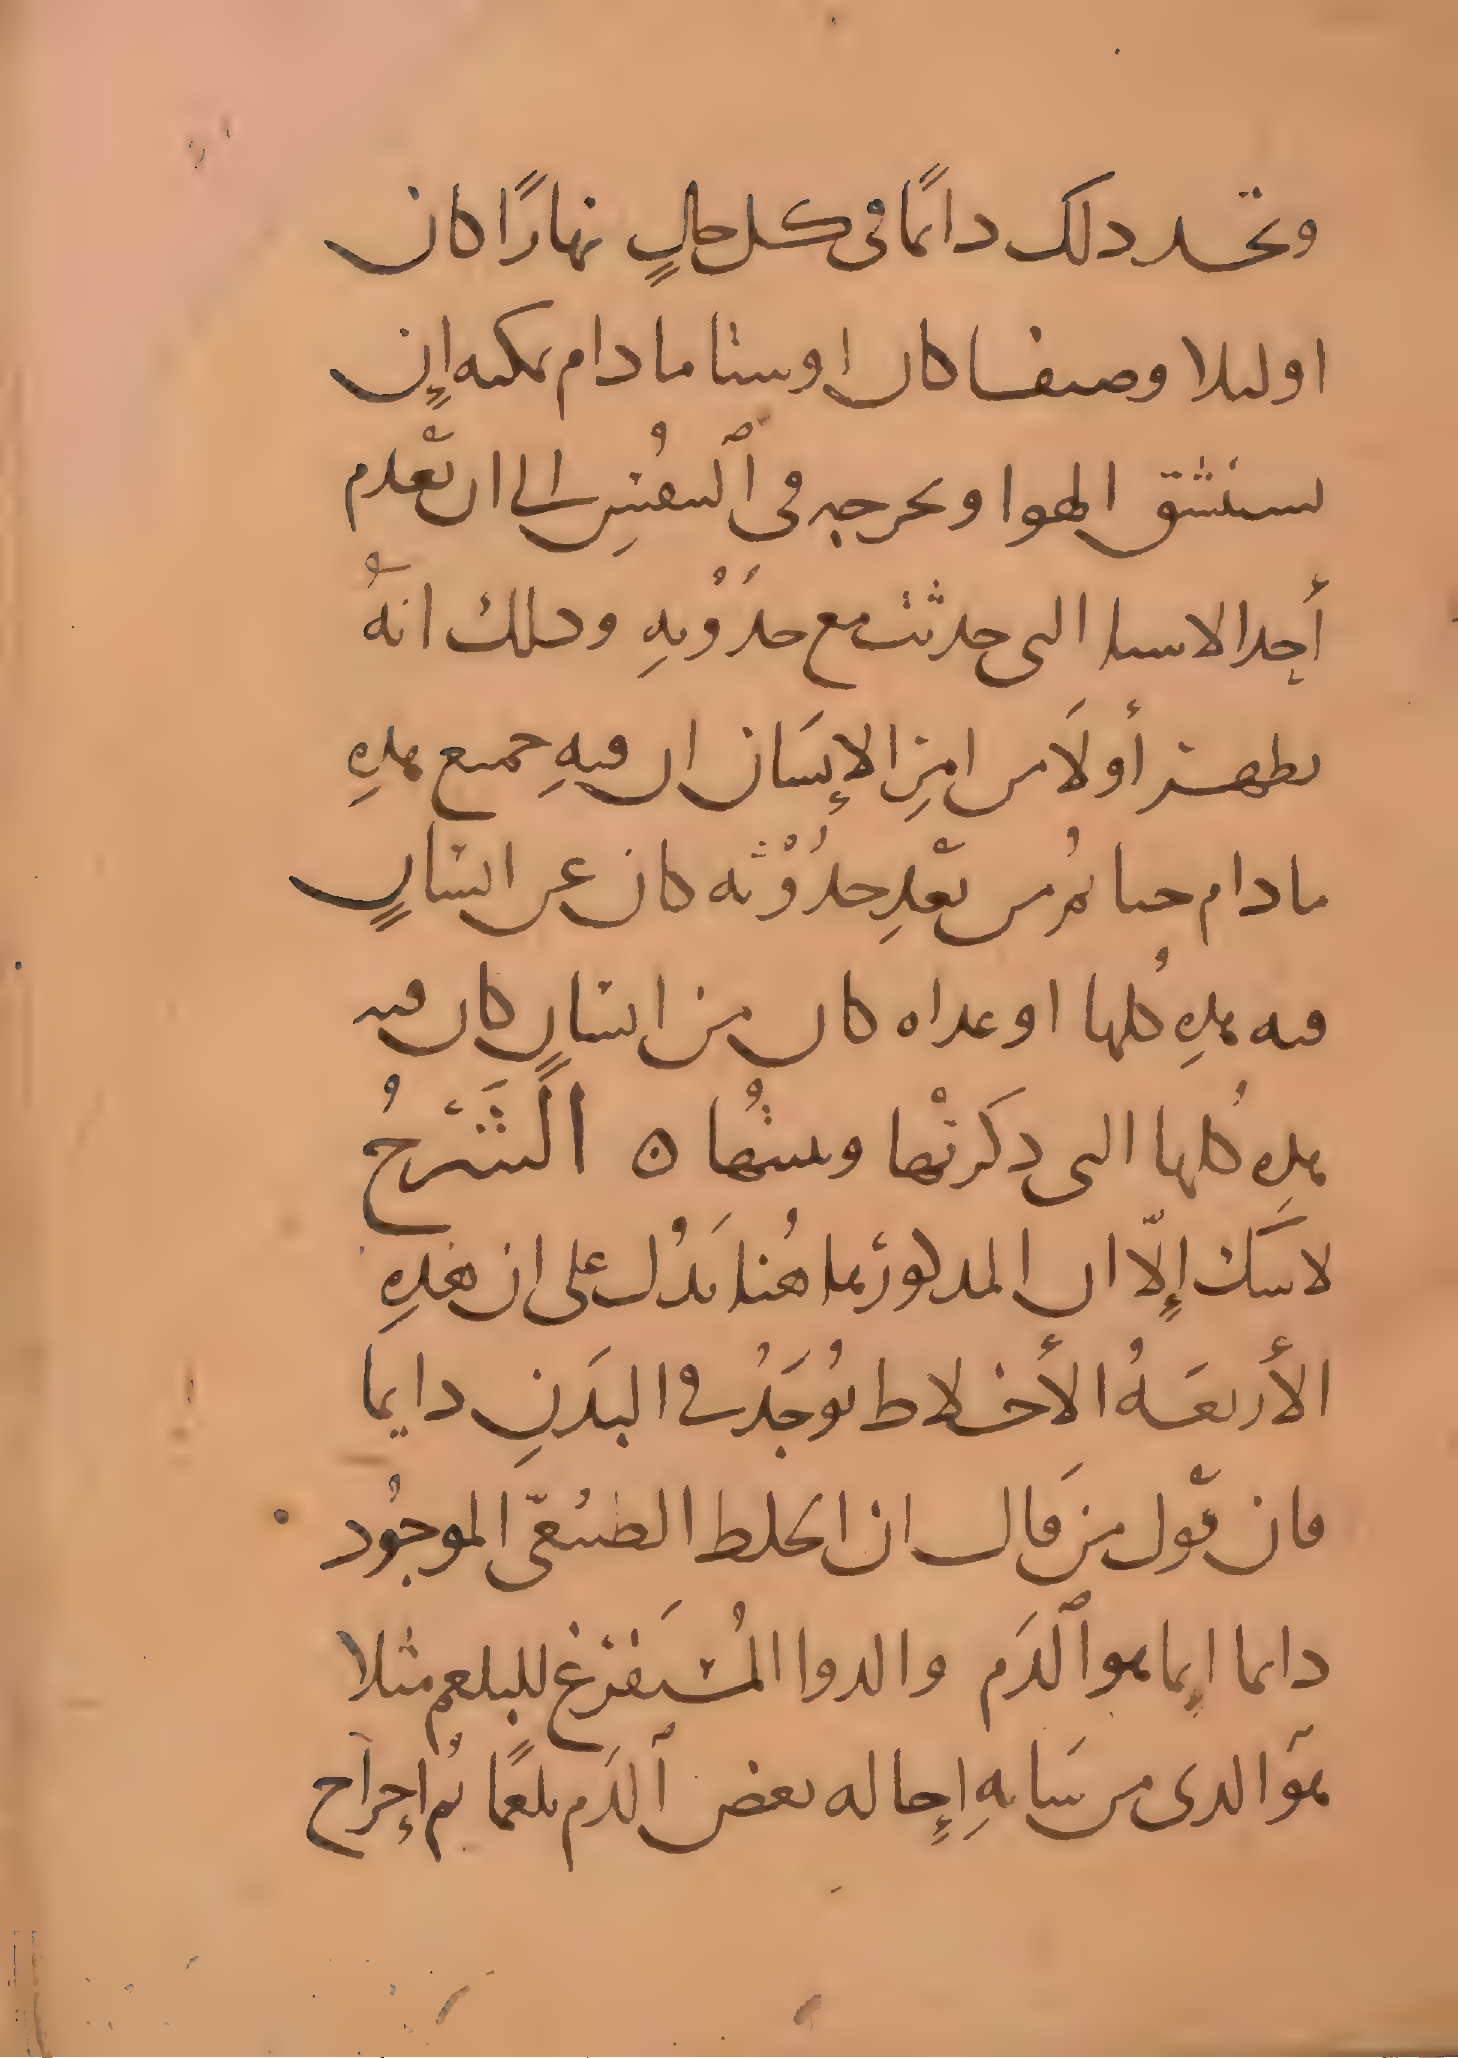 وتجد دلك دائما فى كل حالٍ نهارًا كان
او ليلا وصيفا كان او ستا ما دام يمكنه إن
يستنشق الهوا ويخرجه فى ٱلتنفُسِ الى ان تعْدم
أحدا الاسيا التى حدثت مع حدَوْثهِ ودلك انهُ
يظهر أولَا من امرِ الإنسَان ان فيهِ جميع هدهِ
ما دام حيا ثمُ من بعْدِ حدُوْثه كان عن انسَانٍ
فيه هدهِ كُلها او غداه كان من انسانٍ كان فيه
هدهِ كُلها التى دكَرتْها وبينتُها ۞ الشَرْحُ
لا سَك إلّا ان المدكور مما هُنا يَدُل على ان هَدهِ
الأربعَهُ الأخلاط تُوجَدُ فى البدَنِ دايما
فان قْول من قَال ان الخلط الطبُعّى الموجُود
دايما إنما هو ٱلدَم والدوا المُستَفرغ للبلغم مثلا
هوَ الدى من سَانهِ إحاله بعض ٱلدَم بلغمًا ثمُ إخراج